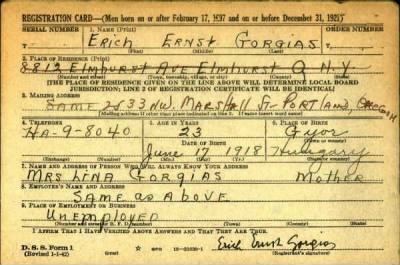 REGISTRATION CARD—(Men born on or after February 17, 1897 and on or before December 31, 1921)
SERIAL NUMBER 1. NAME (Print) ORDER NUMBER
Erich Ernst Gorgias
(First) (Middle) (Last)
2. PLACE OF RESIDENCE (Print)
8812 Elmhurst Ave Elmhurst Q N.Y.
(Number and street) (Town, township, village, or city) (County) (State)
[THE PLACE OF RESIDENCE GIVEN ON THE LINE ABOVE WILL DETERMINE LOCAL BOARD
JURISDICTION; LINE 2 OF REGISTRATION CERTIFICATE WILL BE IDENTICAL]
3. MAILING ADDRESS
Same 2533 NW. Marshall St- Portland, Oregon
[Mailing address if other than place indicated on line 2. If same insert word same]
4. TELEPHONE 5. AGE IN YEARS 6. PLACE OF BIRTH
HA-9-8040 23 Gyor
DATE OF BIRTH (Town or county)
June 17 1918 Hungary
(Exchange) (Number) (Mo.) (Day) (Yr.) (State or country)
7. NAME AND ADDRESS OF PERSON WHO WILL ALWAYS KNOW YOUR ADDRESS
Mrs Lina Gorgias Mother
8. EMPLOYER'S NAME AND ADDRESS
Same as above
9. PLACE OF EMPLOYMENT OR BUSINESS
Unemployed
(Number and street or R. F. D. number) (Town) (County) (State)
I AFFIRM THAT I HAVE VERIFIED ABOVE ANSWERS AND THAT THEY ARE TRUE.
D. S. S. Form 1
(Revised 1-1-42) GPO 16-21630-1 Erich Ernst Gorgias
(Registrant's signature)